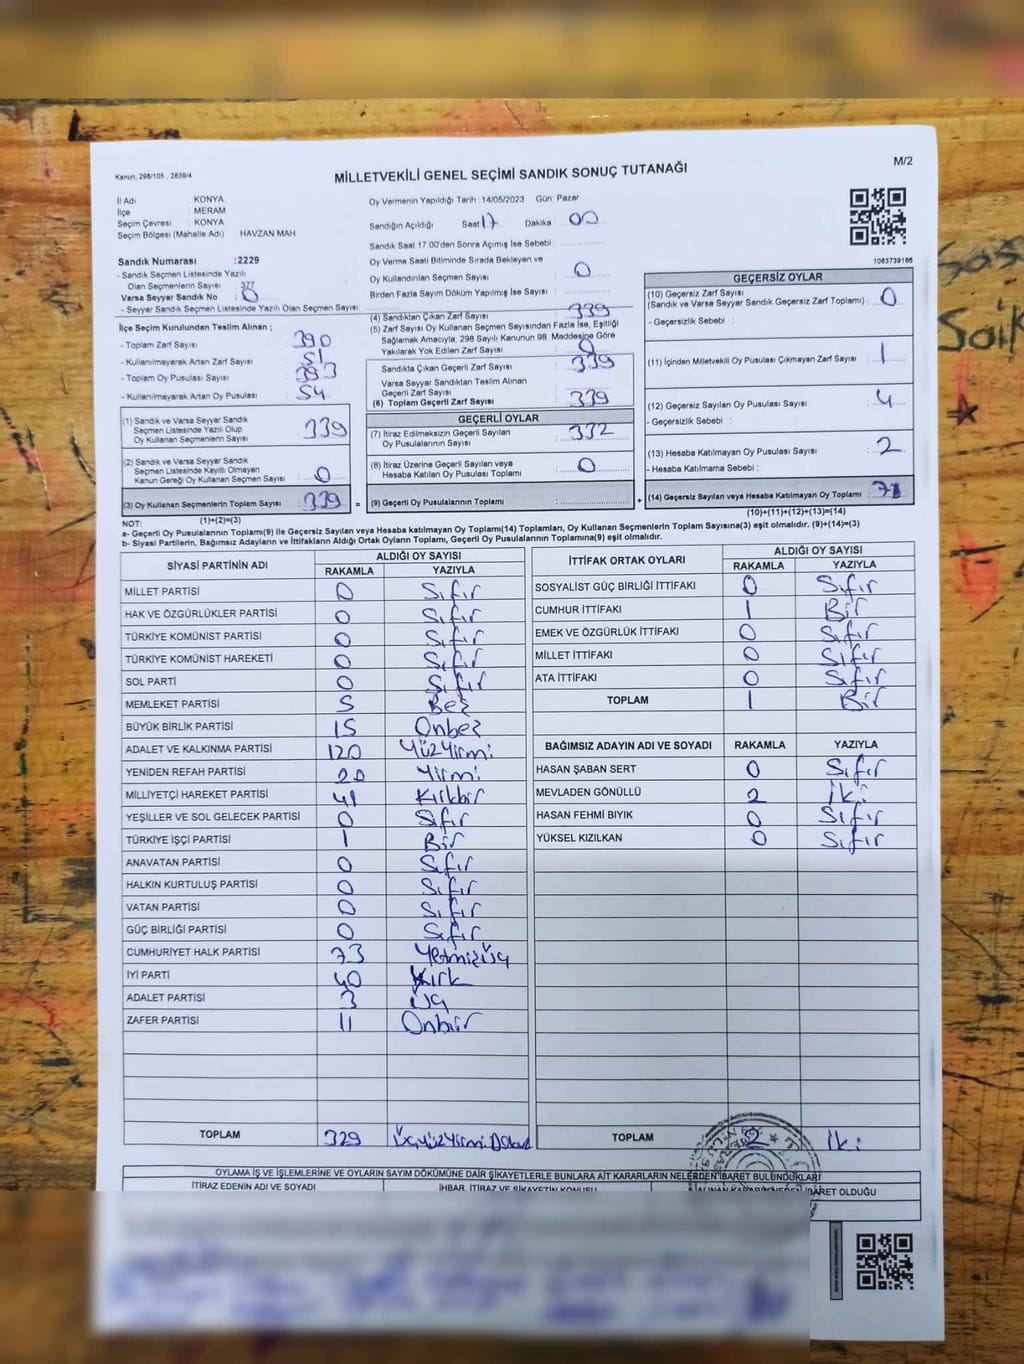 M/2
Kanun, 298/105 , 2839/4
MİLLETVEKİLİ GENEL SEÇİMİ SANDIK SONUÇ TUTANAĞI
İl Adı : KONYA
İlçe : MERAM
Seçim Çevresi : KONYA
Seçim Bölgesi (Mahalle Adı) HAVZAN MAH
Oy Vermenin Yapıldığı Tarih : 14/05/2023 Gün: Pazar
Sandığın Açıldığı Saat 17 Dakika : 00
Sandık Saat 17:00'den Sonra Açımış İse Sebebi :
Oy Verme Saati Bitiminde Sırada Bekleyen ve
Oy Kullandırılan Seçmen Sayısı : 0
Birden Fazla Sayım Döküm Yapılmış İse Sayısı :
1083739186
Sandık Numarası :2229
- Sandık Seçmen Listesinde Yazılı
Olan Seçmenlerin Sayısı : 377
Varsa Seyyar Sandık No : 0
- Seyyar Sandık Seçmen Listesinde Yazılı Olan Seçmen Sayısı:
İlçe Seçim Kurulundan Teslim Alınan ;
- Toplam Zarf Sayısı : 390
- Kullanılmayarak Artan Zarf Sayısı : 51
- Toplam Oy Pusulası Sayısı : 393
- Kullanılmayarak Artan Oy Pusulası : 54
(1) Sandık ve Varsa Seyyar Sandık
Seçmen Listesinde Yazılı Olup
Oy Kullanan Seçmenlerin Sayısı : 339
(2) Sandık ve Varsa Seyyar Sandık
Seçmen Listesinde Kayıtlı Olmayan
Kanun Gereği Oy Kullanan Seçmen Sayısı : 0
(3) Oy Kullanan Seçmenlerin Toplam Sayısı : 339
(1)+(2)=(3)
(4) Sandıktan Çıkan Zarf Sayısı : 339
(5) Zarf Sayısı Oy Kullanan Seçmen Sayısından Fazla İse, Eşitliği
Sağlamak Amacıyla; 298 Sayılı Kanunun 98. Maddesine Göre
Yakılarak Yok Edilen Zarf Sayısı : 0
Sandıkta Çıkan Geçerli Zarf Sayısı : 339
Varsa Seyyar Sandıktan Teslim Alınan
Geçerli Zarf Sayısı :
(6) Toplam Geçerli Zarf Sayısı : 339
GEÇERLİ OYLAR
(7) İtiraz Edilmeksizin Geçerli Sayılan
Oy Pusulalarının Sayısı : 332
(8) İtiraz Üzerine Geçerli Sayılan veya
Hesaba Katılan Oy Pusulası Toplamı : 0
= (9) Geçerli Oy Pusulalarının Toplamı :
GEÇERSİZ OYLAR
(10) Geçersiz Zarf Sayısı
(Sandık ve Varsa Seyyar Sandık Geçersiz Zarf Toplamı) : 0
- Geçersizlik Sebebi :
(11) İçinden Milletvekili Oy Pusulası Çıkmayan Zarf Sayısı : 1
(12) Geçersiz Sayılan Oy Pusulası Sayısı : 4
- Geçersizlik Sebebi :
(13) Hesaba Katılmayan Oy Pusulası Sayısı : 2
- Hesaba Katılmama Sebebi :
+ (14) Geçersiz Sayılan veya Hesaba Katılmayan Oy Toplamı :
(10)+(11)+(12)+(13)=(14)
NOT:
a- Geçerli Oy Pusulalarının Toplamı(9) ile Geçersiz Sayılan veya Hesaba katılmayan Oy Toplamı(14) Toplamları, Oy Kullanan Seçmenlerin Toplam Sayısına(3) eşit olmalıdır. (9)+(14)=(3)
b- Siyasi Partilerin, Bağımsız Adayların ve İttifakların Aldığı Ortak Oyların Toplamı, Geçerli Oy Pusulalarının Toplamına(9) eşit olmalıdır.
SİYASİ PARTİNİN ADI ALDIĞI OY SAYISI
RAKAMLA YAZIYLA
MİLLET PARTİSİ 0 Sıfır
HAK VE ÖZGÜRLÜKLER PARTİSİ 0 Sıfır
TÜRKİYE KOMÜNİST PARTİSİ 0 Sıfır
TÜRKİYE KOMÜNİST HAREKETİ 0 Sıfır
SOL PARTİ 0 Sıfır
MEMLEKET PARTİSİ 5 Beş
BÜYÜK BİRLİK PARTİSİ 15 Onbeş
ADALET VE KALKINMA PARTİSİ 120 Yüzyirmi
YENİDEN REFAH PARTİSİ 20 Yirmi
MİLLİYETÇİ HAREKET PARTİSİ 41 Kırkbir
YEŞİLLER VE SOL GELECEK PARTİSİ 0 Sıfır
TÜRKİYE İŞÇİ PARTİSİ 1 Bir
ANAVATAN PARTİSİ 0 Sıfır
HALKIN KURTULUŞ PARTİSİ 0 Sıfır
VATAN PARTİSİ 0 Sıfır
GÜÇ BİRLİĞİ PARTİSİ 0 Sıfır
CUMHURİYET HALK PARTİSİ 73 Yetmişüç
İYİ PARTİ 40 Kırk
ADALET PARTİSİ 3 Üç
ZAFER PARTİSİ 11 Onbir
TOPLAM 329 Üçyüzyirmi Dokuz
İTTİFAK ORTAK OYLARI ALDIĞI OY SAYISI
RAKAMLA YAZIYLA
SOSYALİST GÜÇ BİRLİĞİ İTTİFAKI 0 Sıfır
CUMHUR İTTİFAKI 1 Bir
EMEK VE ÖZGÜRLÜK İTTİFAKI 0 Sıfır
MİLLET İTTİFAKI 0 Sıfır
ATA İTTİFAKI 0 Sıfır
TOPLAM 1 Bir
BAĞIMSIZ ADAYIN ADI VE SOYADI RAKAMLA YAZIYLA
HASAN ŞABAN SERT 0 Sıfır
MEVLADEN GÖNÜLLÜ 2 İki
HASAN FEHMİ BIYIK 0 Sıfır
YÜKSEL KIZILKAN 0 Sıfır
TOPLAM 2 İki
OYLAMA İŞ VE İŞLEMLERİNE VE OYLARIN SAYIM DÖKÜMÜNE DAİR ŞİKAYETLERLE BUNLARA AİT KARARLARIN NELERDEN İBARET BULUNDUKLARI
İTİRAZ EDENİN ADI VE SOYADI İHBAR, İTİRAZ VE ŞİKAYETİN KONUSU ALINAN KARARIN NEDEN İBARET OLDUĞU